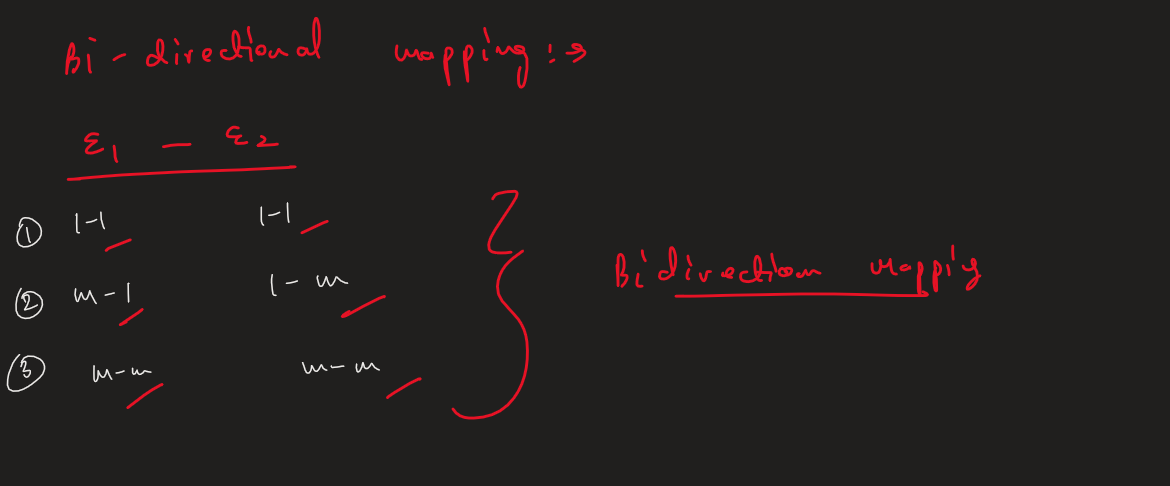 Bi-directional mapping :→
E1 — E2
① 1-1 1-1
② m-1 1-m
③ m-m m-m
Bidirection mapping